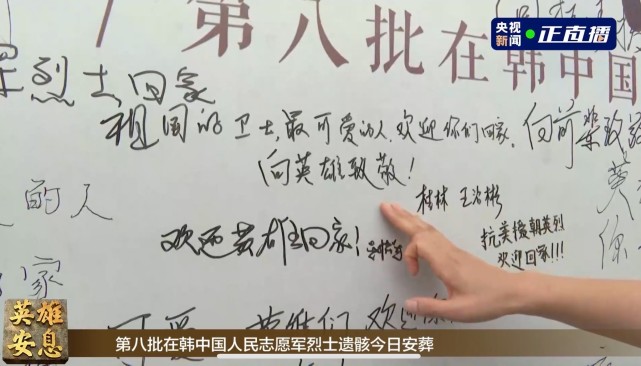 央视新闻 正直播
第八批在韩中国
烈士回家
祖国的卫士,最可爱的人,欢迎你们回家,向前辈致敬
向英雄致敬!
桂林
的人
欢迎英雄回家!
抗美援朝英烈
欢迎回家!!!
家
可爱
英雄们 欢迎你
英雄安息
第八批在韩中国人民志愿军烈士遗骸今日安葬